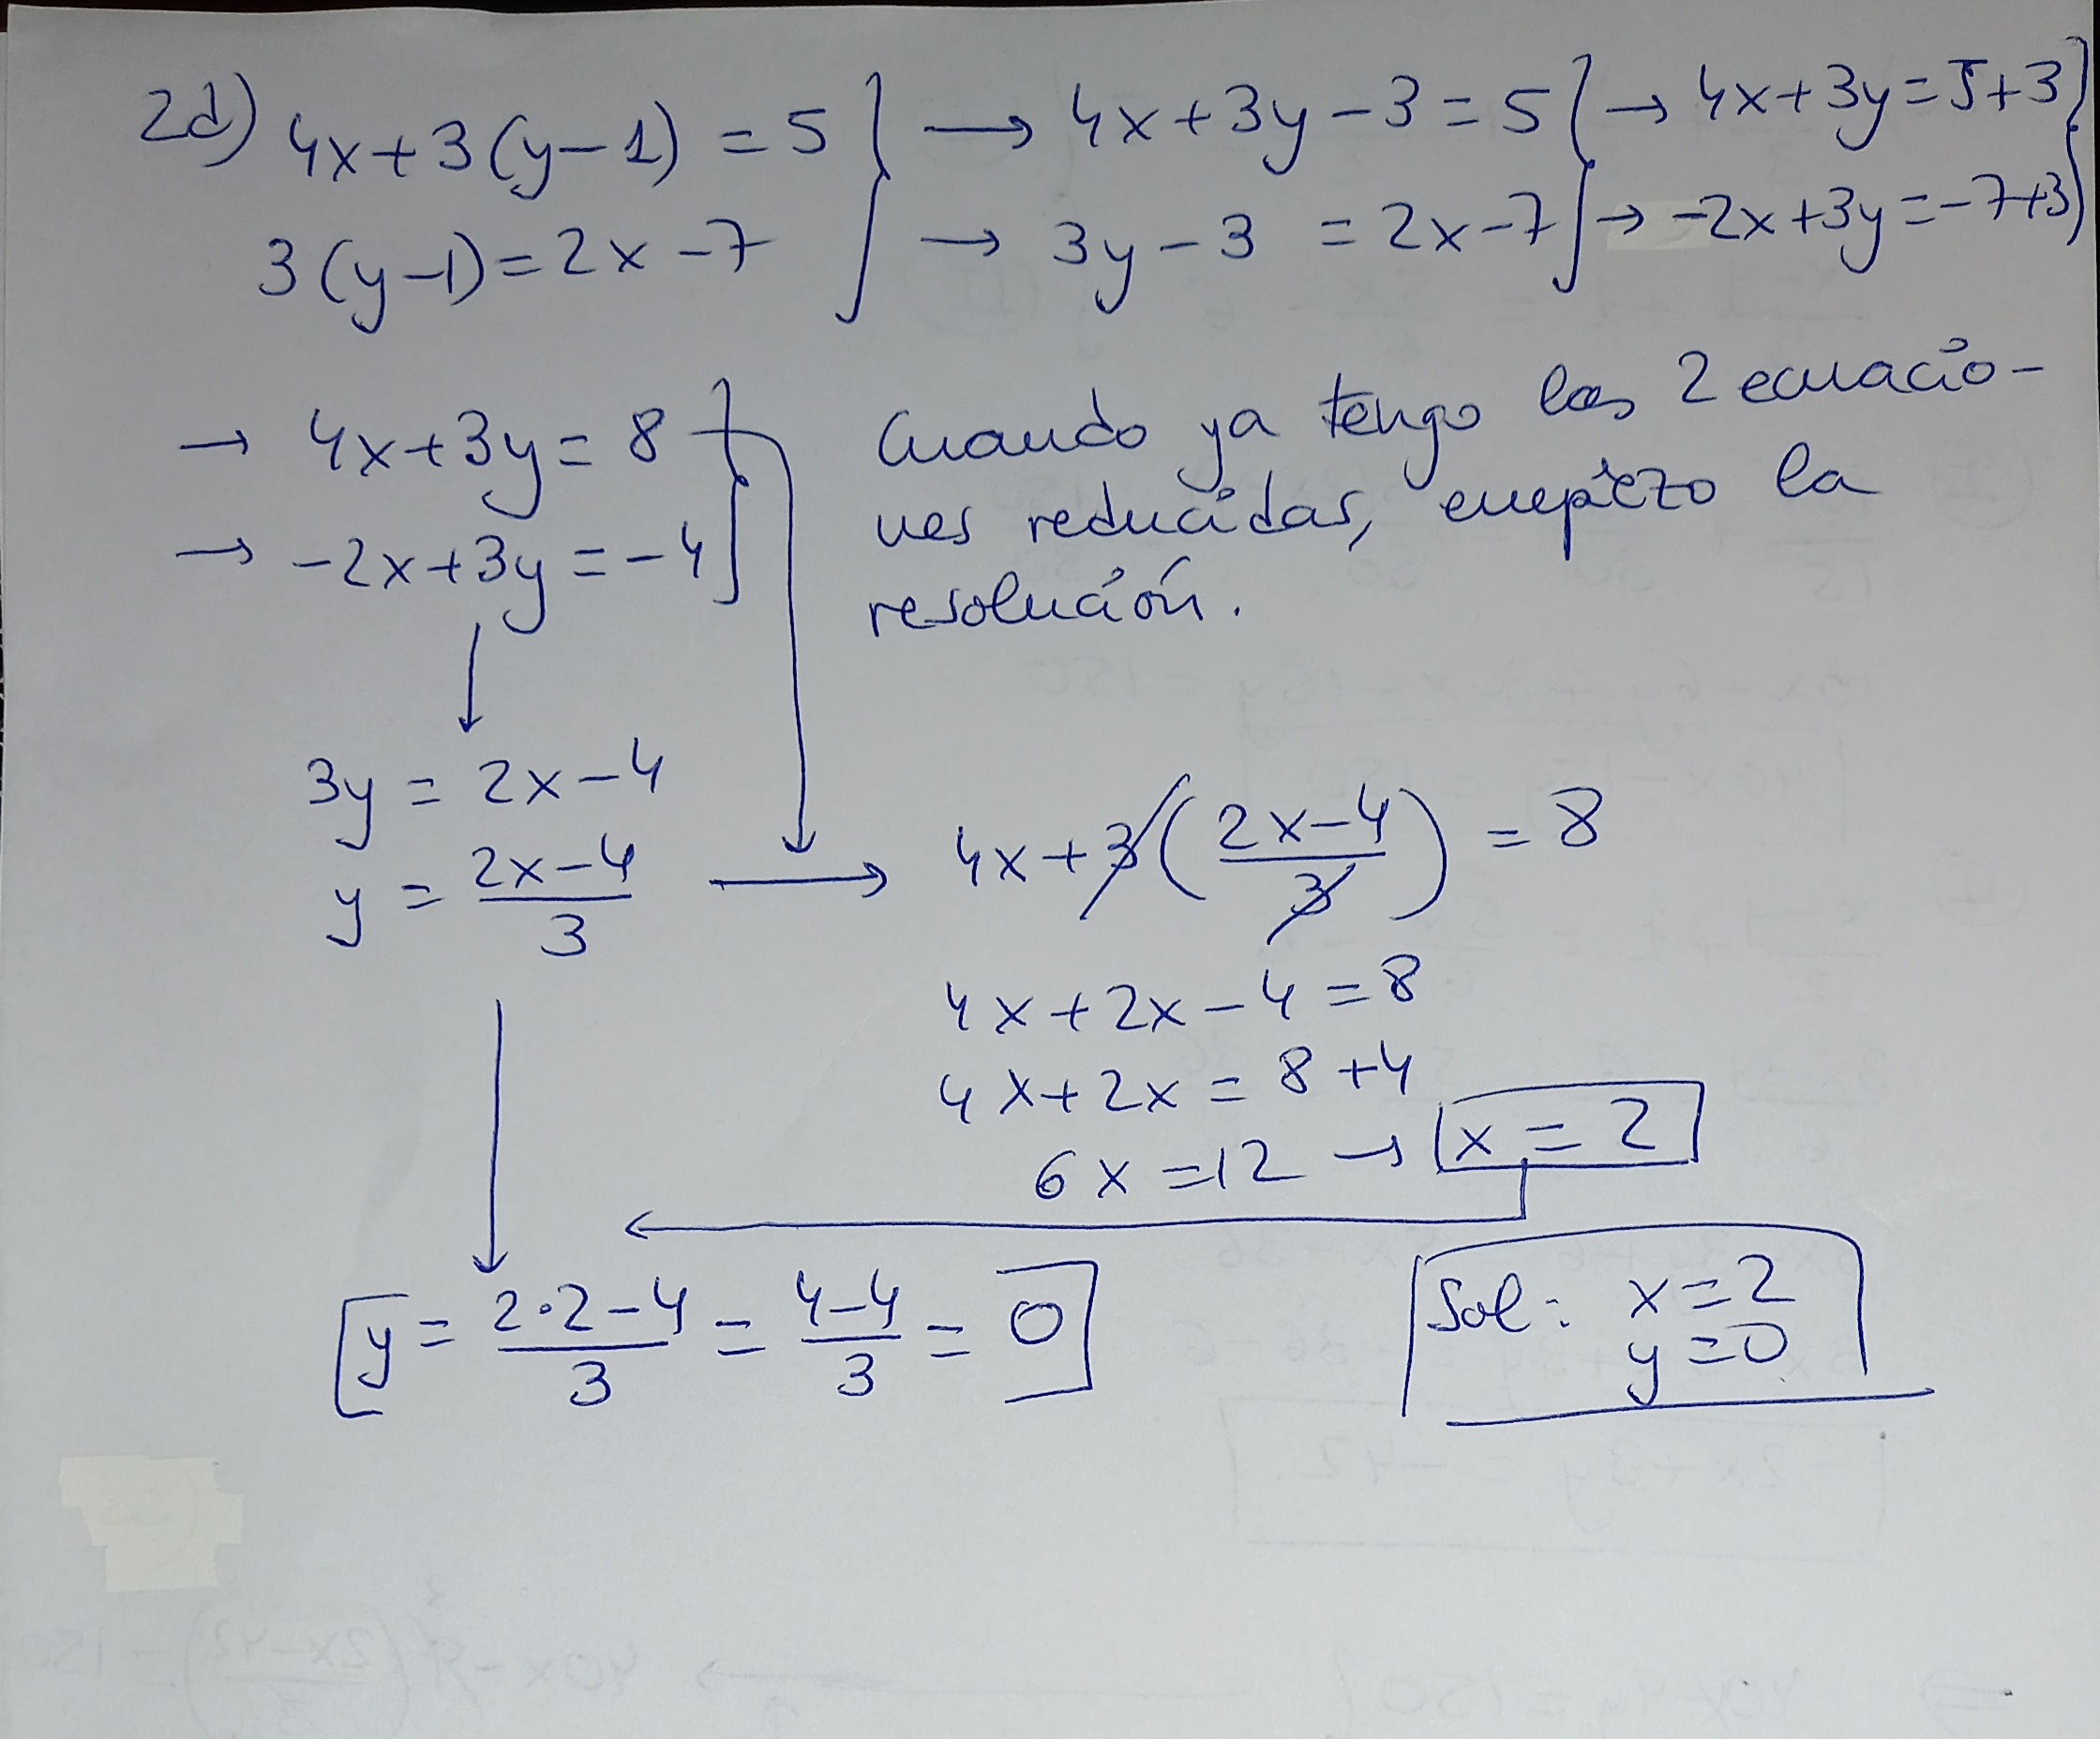 2d) 4x+3(y-1) = 5 } → 4x+3y-3=5 } → 4x+3y=5+3 }
3(y-1)=2x-7 } → 3y-3 = 2x-7 } → -2x+3y=-7+3 }
→ 4x+3y=8
→ -2x+3y=-4
Cuando ya tengo las 2 ecuacio-
nes reducidas, empiezo la
resolución.
3y = 2x-4
y = (2x-4)/3 → 4x+3((2x-4)/3) = 8
4x+2x-4=8
4x+2x=8+4
6x=12 → x=2
y = (2·2-4)/3 = (4-4)/3 = 0
Sol: x=2
y=0